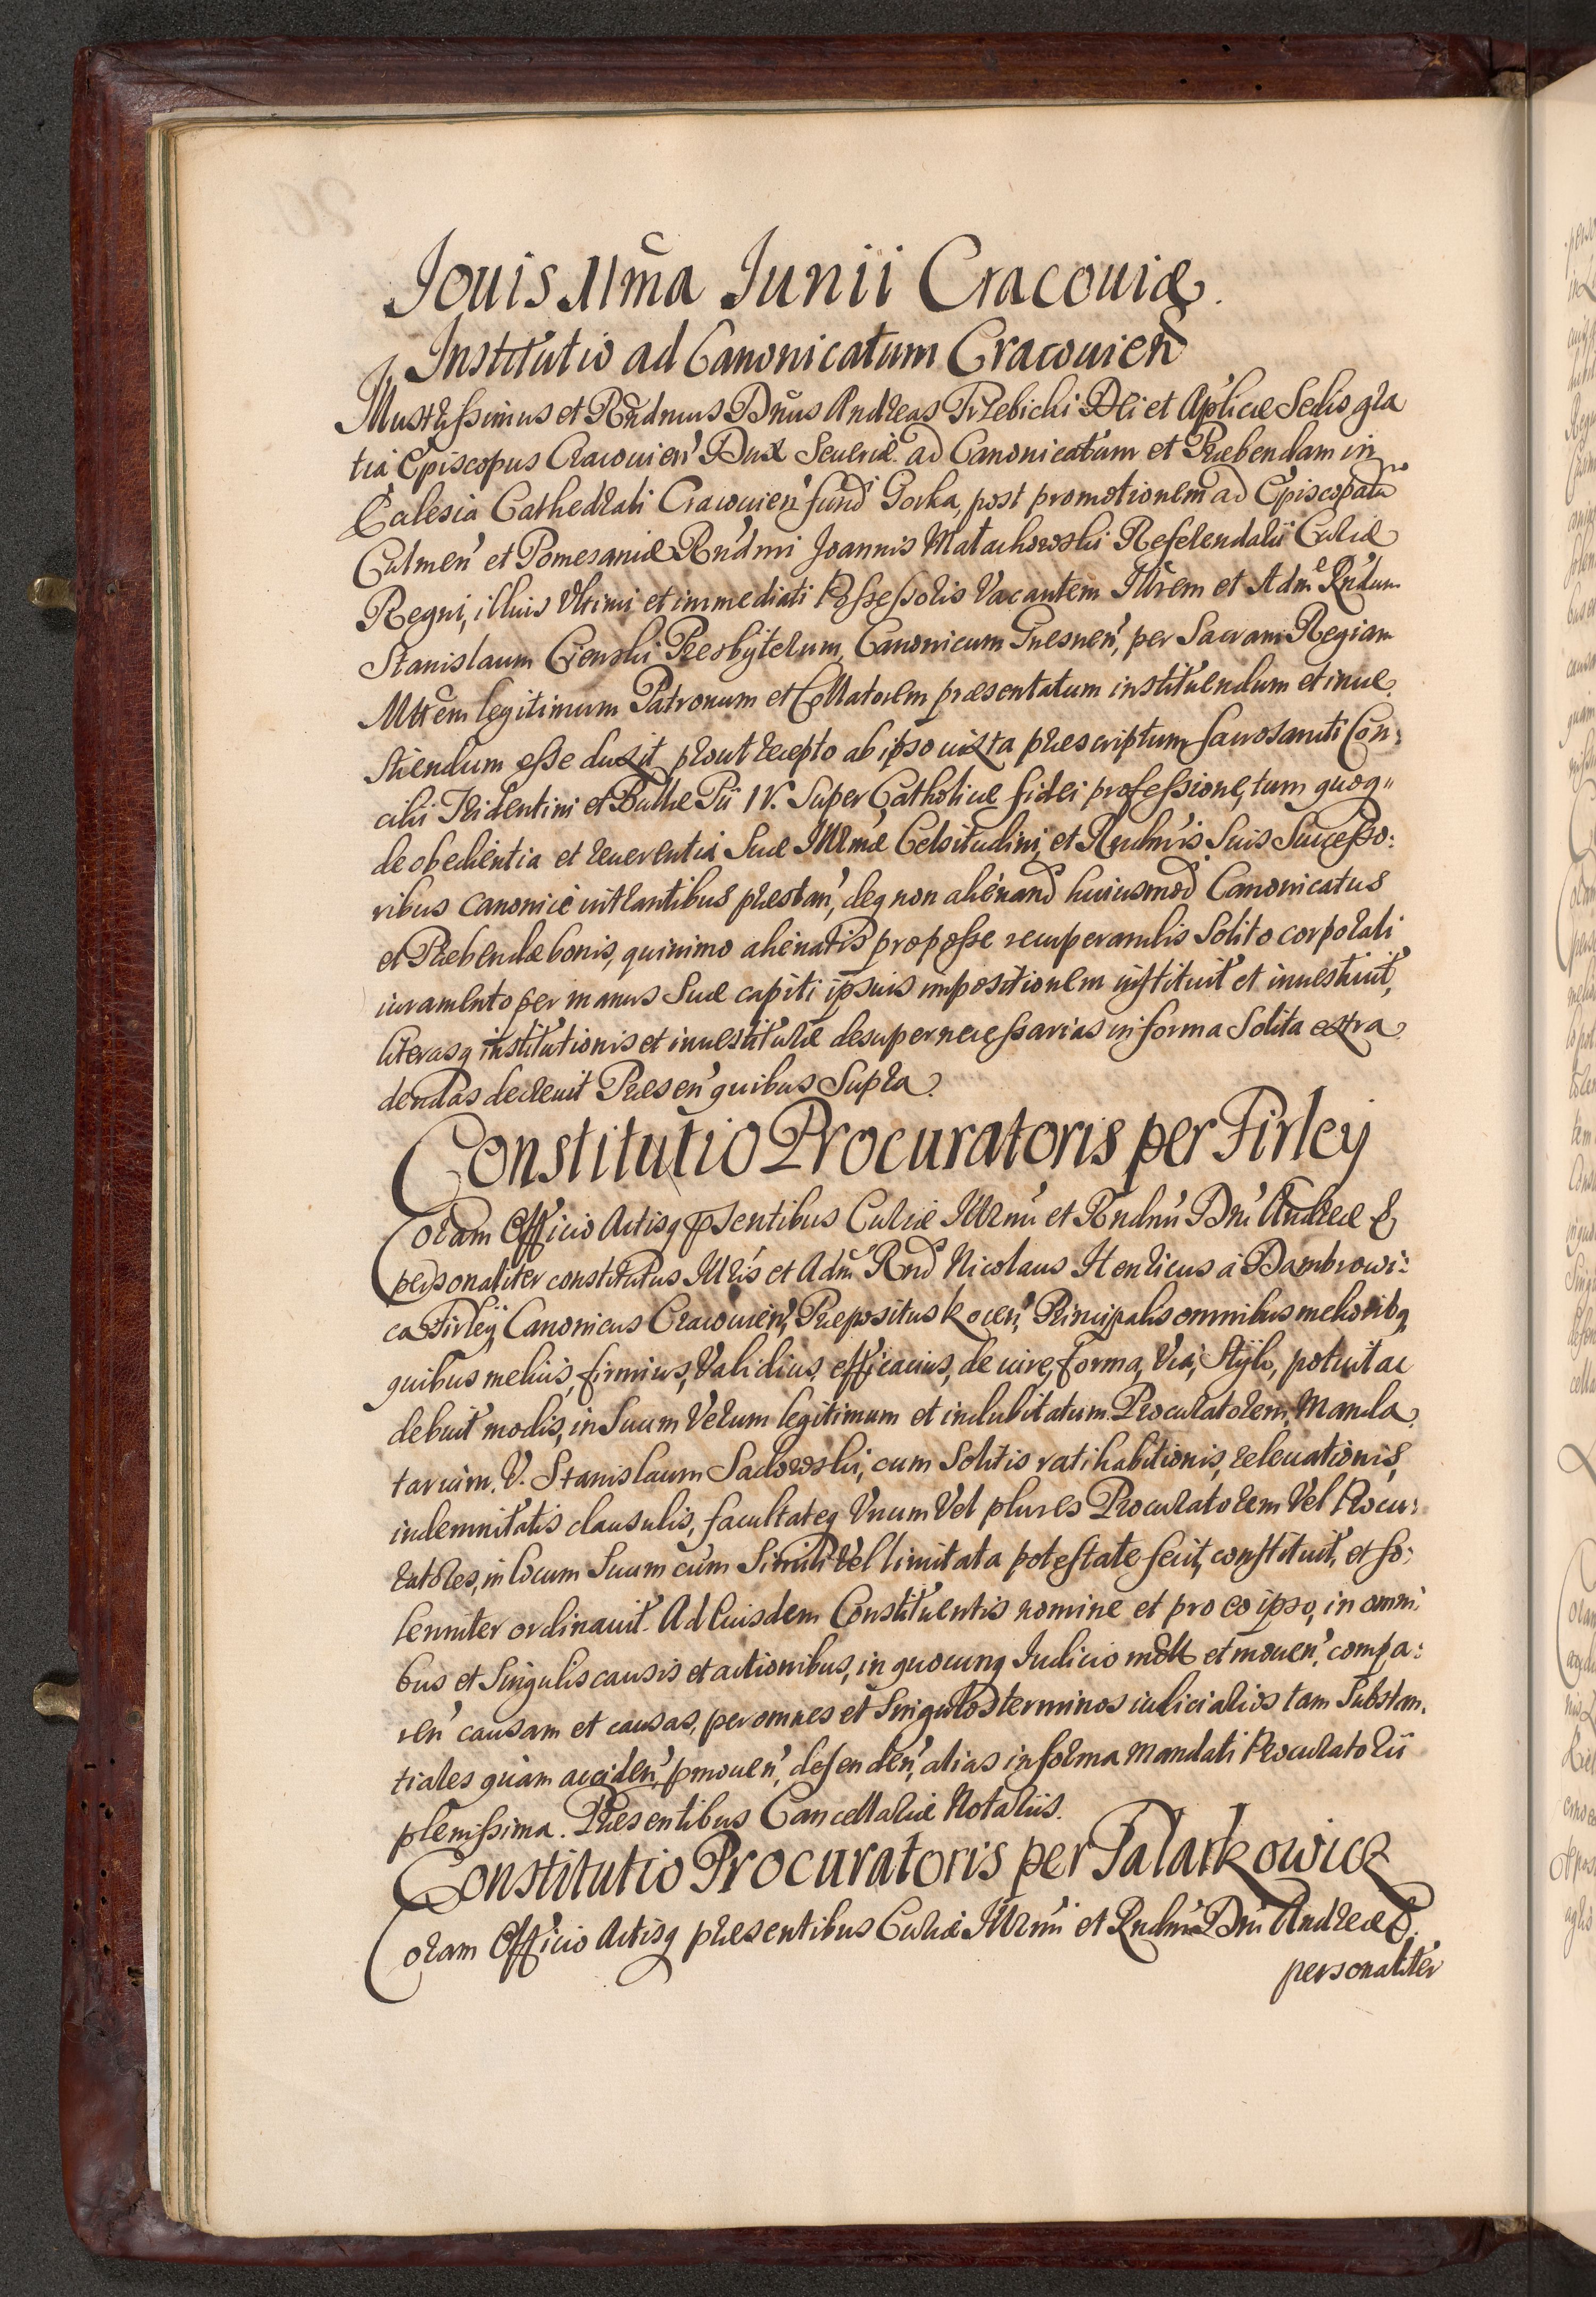 Iouis 11ma Iunii Cracouiæ.
Institutio ad Canonicatum Cracouien̄
Illustrissimus et Rndmus Dnus Andreas Trzebicki Dei et Aplicæ Sedis gra
tia Episcopus Cracouien' Dux Seueriæ ad Canonicatum et Præbendam in
Ecclesia Cathedrali Cracouien' fund' Gorka, post promotionem ad Episcopatū
Culmen' et Pomesaniæ Rndmi Joannis Małachowski Referendarii Curiæ
Regni, illius Vltimi et immediati Possessoris Vacantem Illrem et Adm Rndum
Stanislaum Cienski Presbyterum, Canonicum Gnesnen', per Sacram Regiam
Mttem legitimum Patronum et Collatorem præsentatum instituendum et inue
stiendum esse duxit, prout recepto ab ipso iuxta præscriptum sacrosancti Con:
cilii Tridentini et Bullæ Pii IV. Super Catholicæ fidei professione, tum quoq"
de obedientia et reuerentia Suæ Illrmæ Celsitudini, et Rndmis Suis Successo:
ribus canonicè intrantibus præstan', deq non alienand' huiusmod' Canonicatus
et Præbendæ bonis, quinimo alienatis pro posse recuperandis Solito corporali
iuramento per manus Suæ capiti ipsius impositionem instituit et inuestiuit,
literasq institutionis et inuestituræ desuper necessarias in forma Solita extra
dendas decreuit Præsen' quibus Supra.
Constitutio Procuratoris per Firley
Coram Officio Actisq pñsentibus Curiæ Illrmi et Rndmi Dni Andreæ &
personaliter constitutus Illris et Adm Rnd' Nicolaus Henricus à Dambrowi:
ca Firley Canonicus Cracouien', Præpositus Kocen', Principalis omnibus melioribq
quibus melius, firmius, Validius, efficacius, de iure, forma, Via, Stylo, potuit ac
debuit modis, in Suum Verum legitimum et indubitatum Procuratorem, Manda
tarium. V. Stanislaum Sadowski, cum Solitis ratihabitionis, releuationis,
indemnitatis clausulis, facultateq Vnum Vel plures Procuratorem Vel Procu:
ratores, in locum Suum cum Simili Vel limitata potestate fecit, constituit, et so:
lenniter ordinauit. Ad Euisdem Constituentis nomine et pro eo ipso, in omni
bus et Singulis causis et actionibus, in quocunq Iudicio mott et mouen', compa:
ren' causam et causas, per omnes et Singulos terminos iudiciarios tam Substan
tiales quàm acciden', pmouen', defenden', alias in forma Mandati Procuratorii
plenissima. Præsentibus Cancellariæ Notariis.
Constitutio Procuratoris per Talarkowicz
Coram Officio Actisq præsentibus Curiæ Illrmi et Rndmi Dni Andreæ &.
personaliter